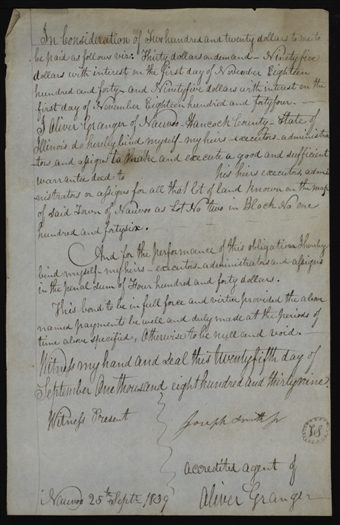 In Consideration of Two hundred and twenty dollars to me to
be paid as follows viz: Thirty dollars on demand — Ninety five
dollars with interest on the first day of November Eighteen
hundred and forty — and Ninety five dollars with interest on the
first day of November Eighteen hundred and forty four. —
I Oliver Granger of Nauvoo — Hancock County — State of
Illinois do hereby bind myself — my heirs — executors — administra
tors and assigns to make and execute a good and sufficient
warrantee deed to his heirs executors admi
nistrators or assigns for all that lot of land known on the map
of said Town of Nauvoo as Lot No two in Block No one
hundred and forty six.
And for the performance of this obligation I hereby
bind myself — my heirs — executors administrators and assigns
in the penal sum of Four hundred and forty dollars.
This bond to be in full force and virtue provided the above
named payments be well and duly made at the periods of
time above specified, Otherwise to be null and void.
Witness my hand and Seal this twenty fifth day of
September One thousand eight hundred and thirty nine
Witness Present
Joseph Smith Jr
accredited agent of
Nauvoo 25th Septr 1839
Oliver Granger